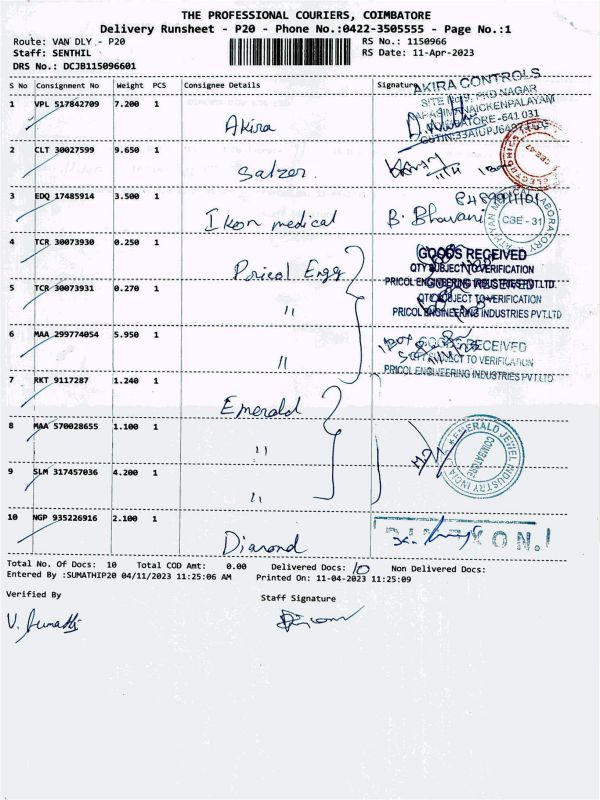 THE PROFESSIONAL COURIERS, COIMBATORE
Delivery Runsheet - P20 - Phone No.:0422-3505555 - Page No.:1
Route: VAN DLY - P20 RS No.: 1150966
Staff: SENTHIL RS Date: 11-Apr-2023
DRS No.: DCJB115096601
S No Consignment No Weight PCS Consignee Details Signature
1 VPL 517842709 7.200 1
Akira
AKIRA CONTROLS
SITE No 9, PKD NAGAR
PAPPANAICKENPALAYAM
COIMBATORE - 641 031
2 CLT 30027599 9.650 1
Salzer
3 EDQ 17485914 3.500 1
Ikon medical
B. Bhavani
CBE - 31
4 TCR 30073930 0.250 1
Pricol Engg
GOODS RECEIVED
QTY SUBJECT TO VERIFICATION
PRICOL ENGINEERING INDUSTRIES PVT.LTD.
5 TCR 30073931 0.270 1
"
QTY SUBJECT TO VERIFICATION
PRICOL ENGINEERING INDUSTRIES PVT.LTD
6 MAA 299774054 5.950 1
"
GOODS RECEIVED
SUBJECT TO VERIFICATION
PRICOL ENGINEERING INDUSTRIES PVT.LTD
7 RKT 9117287 1.240 1
Emerald
8 MAA 570028655 1.100 1
"
EMERALD JEWEL INDUSTRY INDIA
COIMBATORE
9 SLM 317457036 4.200 1
"
10 NGP 935226916 2.100 1
Diamond
Total No. Of Docs: 10 Total COD Amt: 0.00 Delivered Docs: 10 Non Delivered Docs:
Entered By :SUMATHIP20 04/11/2023 11:25:06 AM Printed On: 11-04-2023 11:25:09
Verified By Staff Signature
V. Sumathi